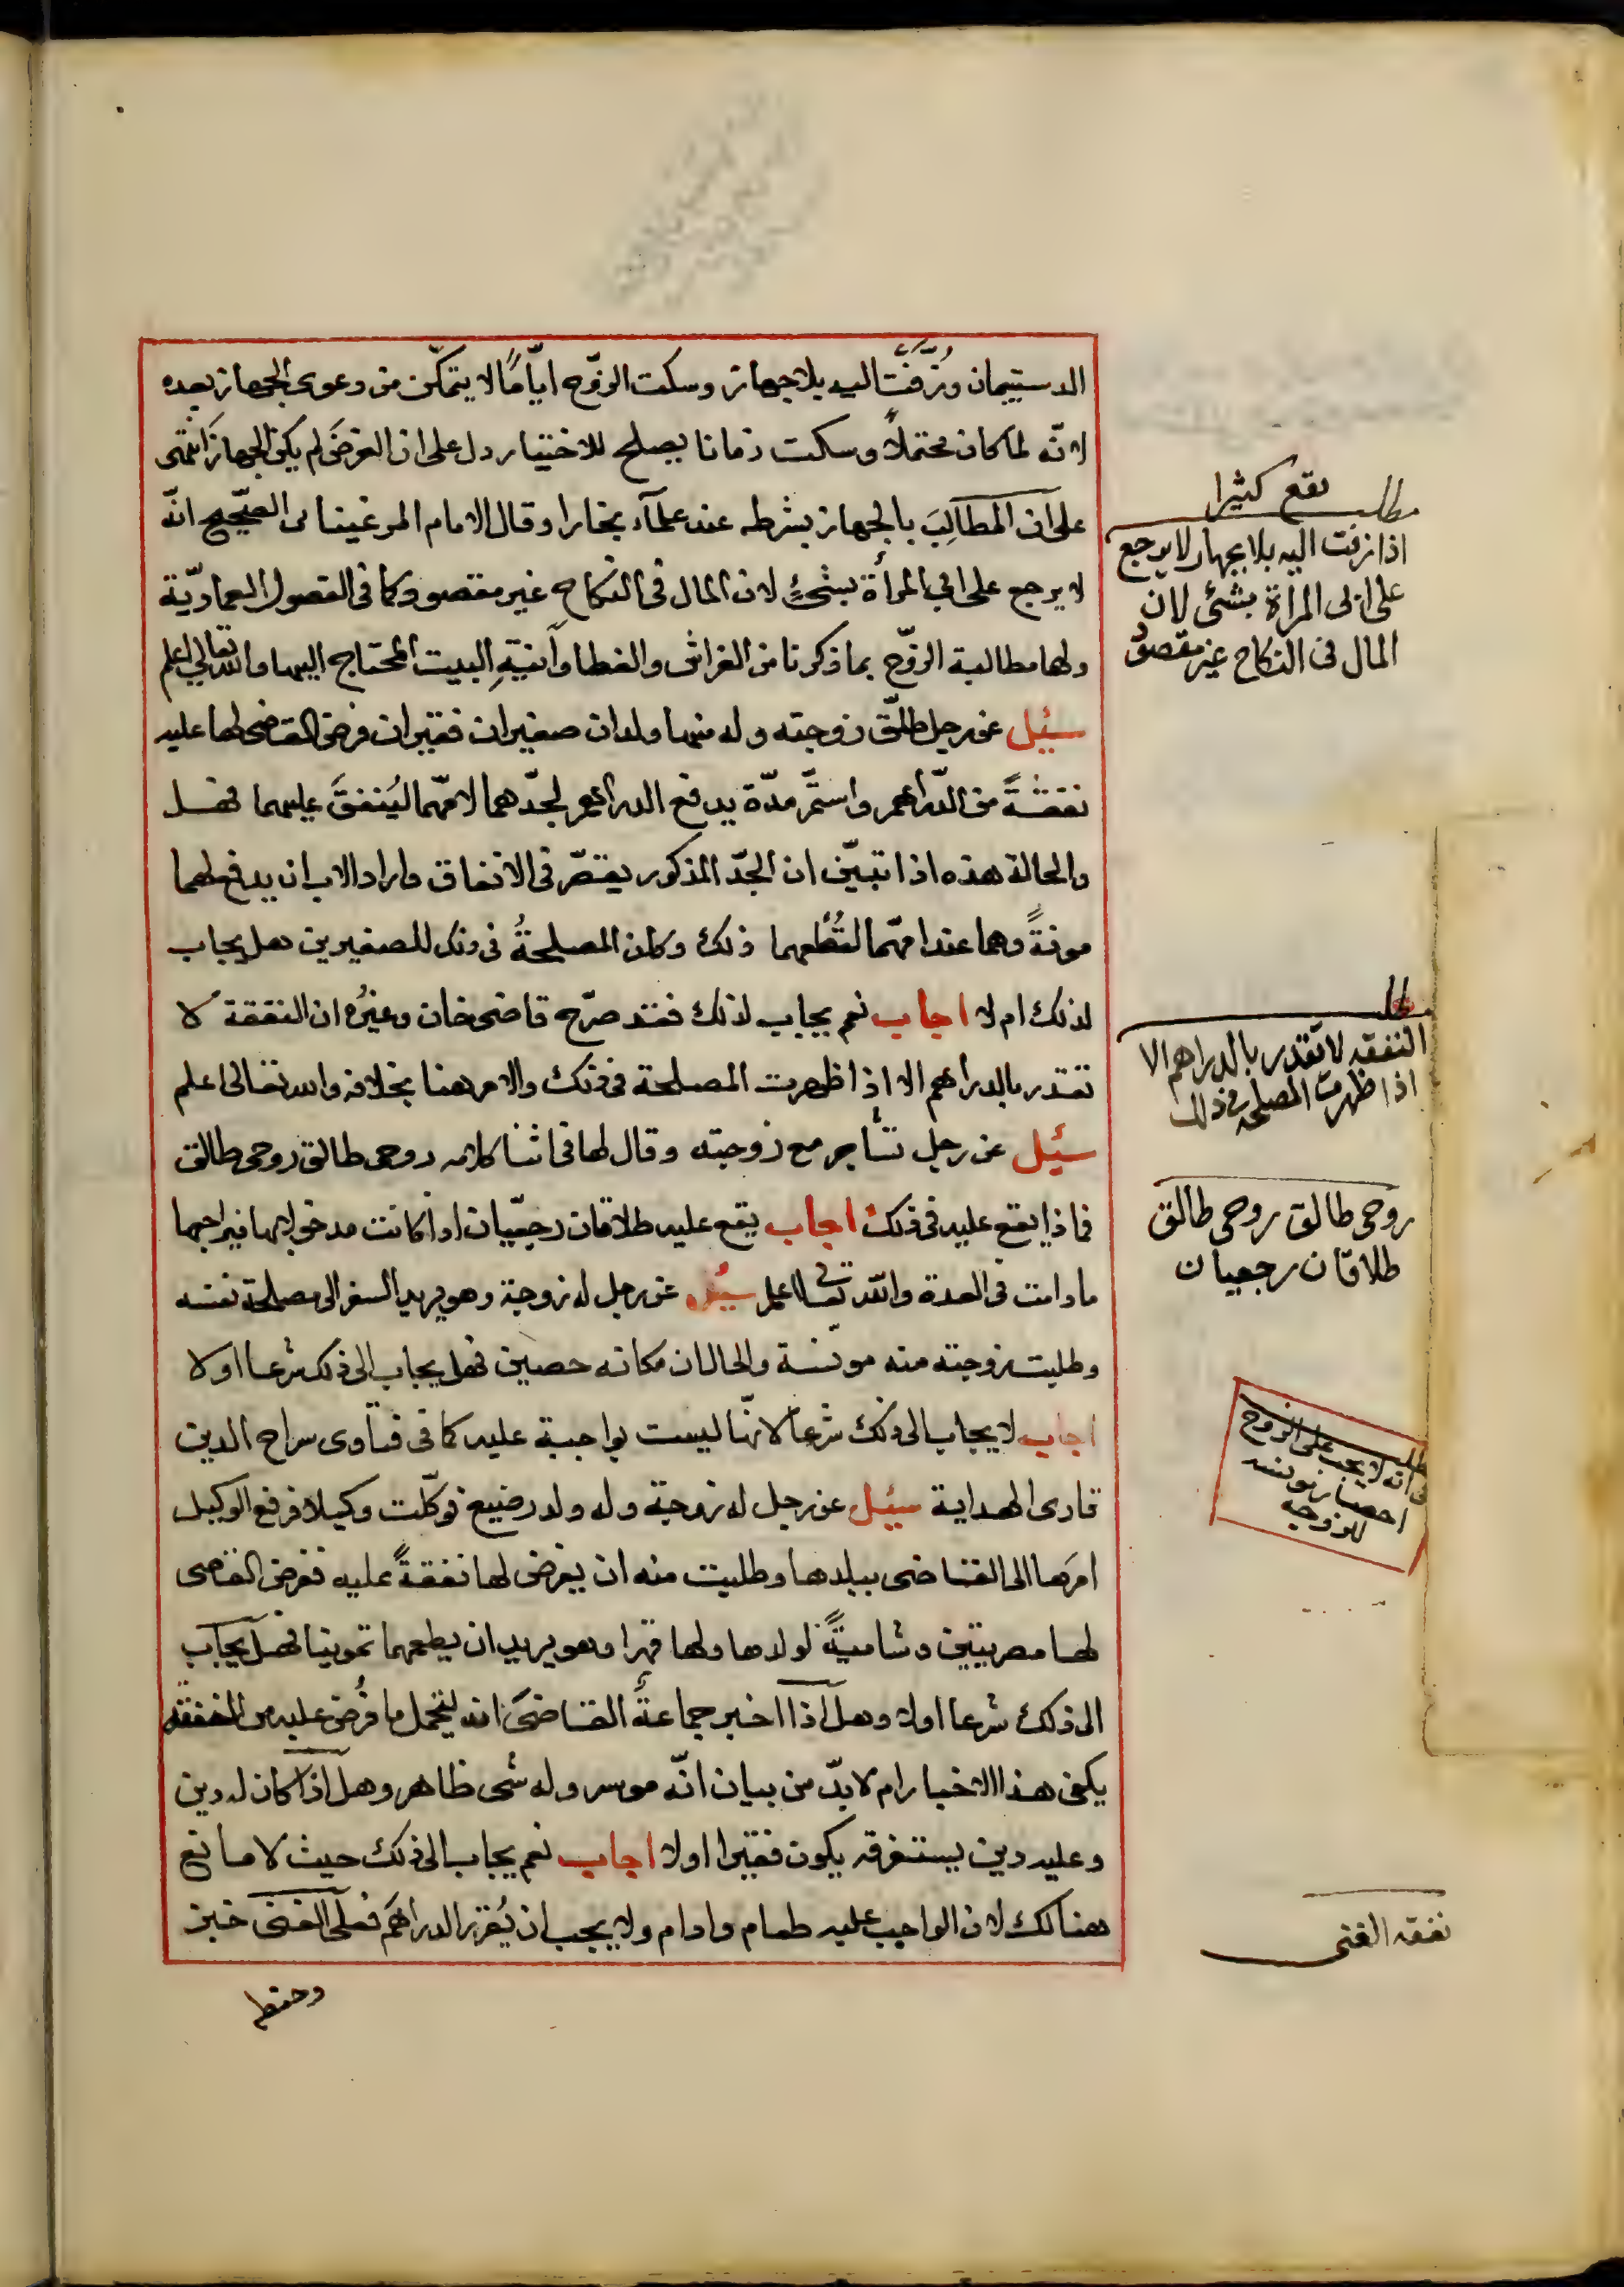 الدستيمان وزفّت اليه بلا جهاز وسكت الزوّج ايّامًا لا يتمكّن من دعوى الجهاز بعده
لانّه لما كان محتملاً وسكت زمانا يصلح للاختيار دل على ان الغرض لم يكن الجهاز انتهى
على ان المطالب بالجهاز بشرطه عند علمآء بخارا وقال الامام المرغينانى الصّحيح انّه
لا يرجع على ابي المرأة بشئٍ لان المال فى النكاح غير مقصود كما فى الفصول العماديّة
ولها مطالبة الزوّج بما ذكرنا من الفراش والغطا وآنيةِ البيت المحتاج اليها والله تعالى اعلم
سئيل عن رجل طلّق زوجته وله منها ولدان صغيران فقيران فرض القاضى لهما عليه
نفقةً من الدّراهم واستمّر مدّة يدفع الدراهم لجدّهما لامّهما ليُنفقَ عليهما فهل
والحالة هذه اذا تبيّن ان الجدّ المذكور يقتّر فى الانفاق واراد الاب ان يدفع لهما
مونةً وهما عند امّهما لتُطعمهما ذلك وكان المصلحةُ فى ذلك للصغيرين هل يجاب
لذلك ام لا اجاب نعم يجاب لذلك فقد صرّح قاضى خان وغيرُه ان النفقة لا
تقدر بالدراهم الا اذا ظهرت المصلحة فى ذلك والامر هنا بخلافه والله تعالى اعلم
سئيل عن رجل تشاجر مع زوجته وقال لها فى اثنا كلامه روحى طالق روحى طالق
فماذا يقع عليه فى ذلك اجاب يقع عليه طلاقان رجعيّان اذا كانت مدخولا بها فيراجعها
ما دامت فى العدة والله تعالى اعلم سئيل عن رجل له زوجة وهو يريد السفر الى مصلحة نفسه
وطلبت زوجته منه مونسة والحال ان مكانه حصين فهل يجاب الى ذلك شرعا اولا
اجاب لا يجاب الى ذلك شرعا لانّها ليست بواجبة عليه كما فى فتاوى سراج الدين
قارى الهداية سئيل عن رجل له زوجة وله ولد رضيع توكّلت وكيلا فرفع الوكيل
امرَها الى القاضى ببلدها وطلبت منه ان يفرض لها نفقةً عليه ففرض القاضى
لها مصريتين وشاميةً لولدها ولها قهرا وهو يريد ان يطعمهما تموينا فهل يجاب
الى ذلك شرعا اولا وهل اذا اخبر جماعةٌ القاضىَ انه يتحمل ما فُرض عليه من النفقة
يكفى هذا الاخبار ام لا بدّ من بيان انّه موسر وله شى ظاهر وهل اذا كان له دين
وعليه دين يستغرقه يكون فقيرا اولا اجاب نعم يجاب الى ذلك حيث لا مانع
هنالك لان الواجب عليه طعام وادام ولا يجب ان يُقرر الدراهم فعلى الغنى خبز
وحنطه
يقع كثيرا
مطلب
اذا زفت اليه بلا جهاز لا يرجع
على ابى المراة بشئى لان
المال فى النكاح غير مقصود
مطلب
النفقه لا تقدر بالدراهم الا
اذا ظهرت المصلحه فى ذلك
روحى طالق روحى طالق
طلاقان رجعيان
مطلب
فى انه لا يجب على الزوج
احضار مونسه
للزوجه
نفقه الغنى